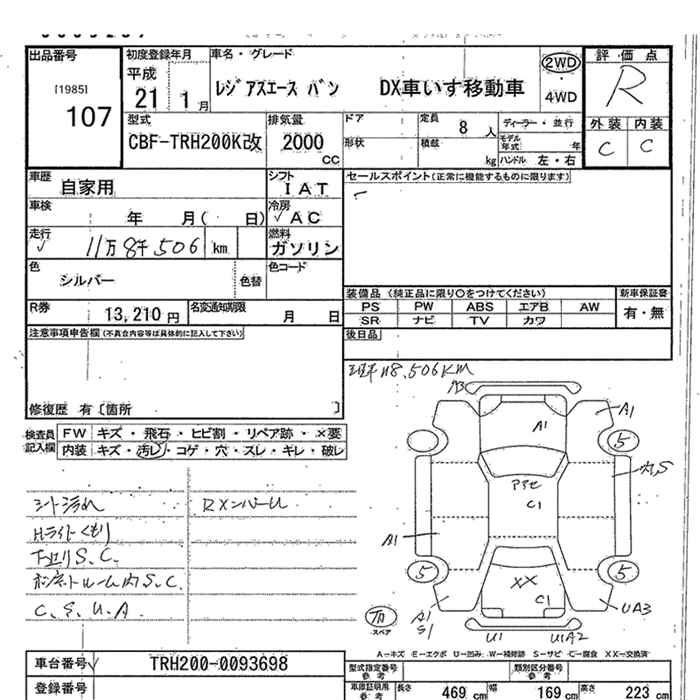 出品番号 初度登録年月 車名・グレード 評価点
[1985] 平成 2WD R
107 21 1月 レジアスエース バン DX車いす移動車 4WD
型式 排気量 ドア 定員 8人 ディーラー・並行 外装 内装
CBF-TRH200K改 2000cc 形状 積載 kg モデル年式 年 C C
ハンドル 左・右
車歴 自家用 シフト IAT セールスポイント(正常に機能するものに限ります)
車検 年 月( 日) 冷房 AC
走行 11万8千506km 燃料 ガソリン
色 シルバー 色替 色コード
装備品 (純正品に限り○をつけてください) 新車保証書
R券 13,210円 名変通知期限 月 日 PS PW ABS エアB AW 有・無
SR ナビ TV カワ
注意事項申告欄(不具合内容等は具体的に記入して下さい) 後日品
118,506KM
修復歴 有〔箇所 〕
検査員記入欄 FW キズ・飛石・ヒビ割・リペア跡・×要
内装 キズ・汚レ・コゲ・穴・スレ・キレ・破レ
A3
A1 A1
5 5
C1
A1
シート汚れ RXンバーU
Hライトくもり
下廻りS.C.
5 5
XX
C1
ボンネットルーム内S.C.
C.S.U.A.
A1 S1 UA3
スペア U1 U1A2
A－キズ E－エクボ U－凹み W－補修跡 S－サビ C－腐食 XX－交換済
車台番号 TRH200-0093698 型式指定番号 参考 類別区分番号 参考
登録番号 車庫証明用参考 長さ 469cm 幅 169cm 高さ 223cm